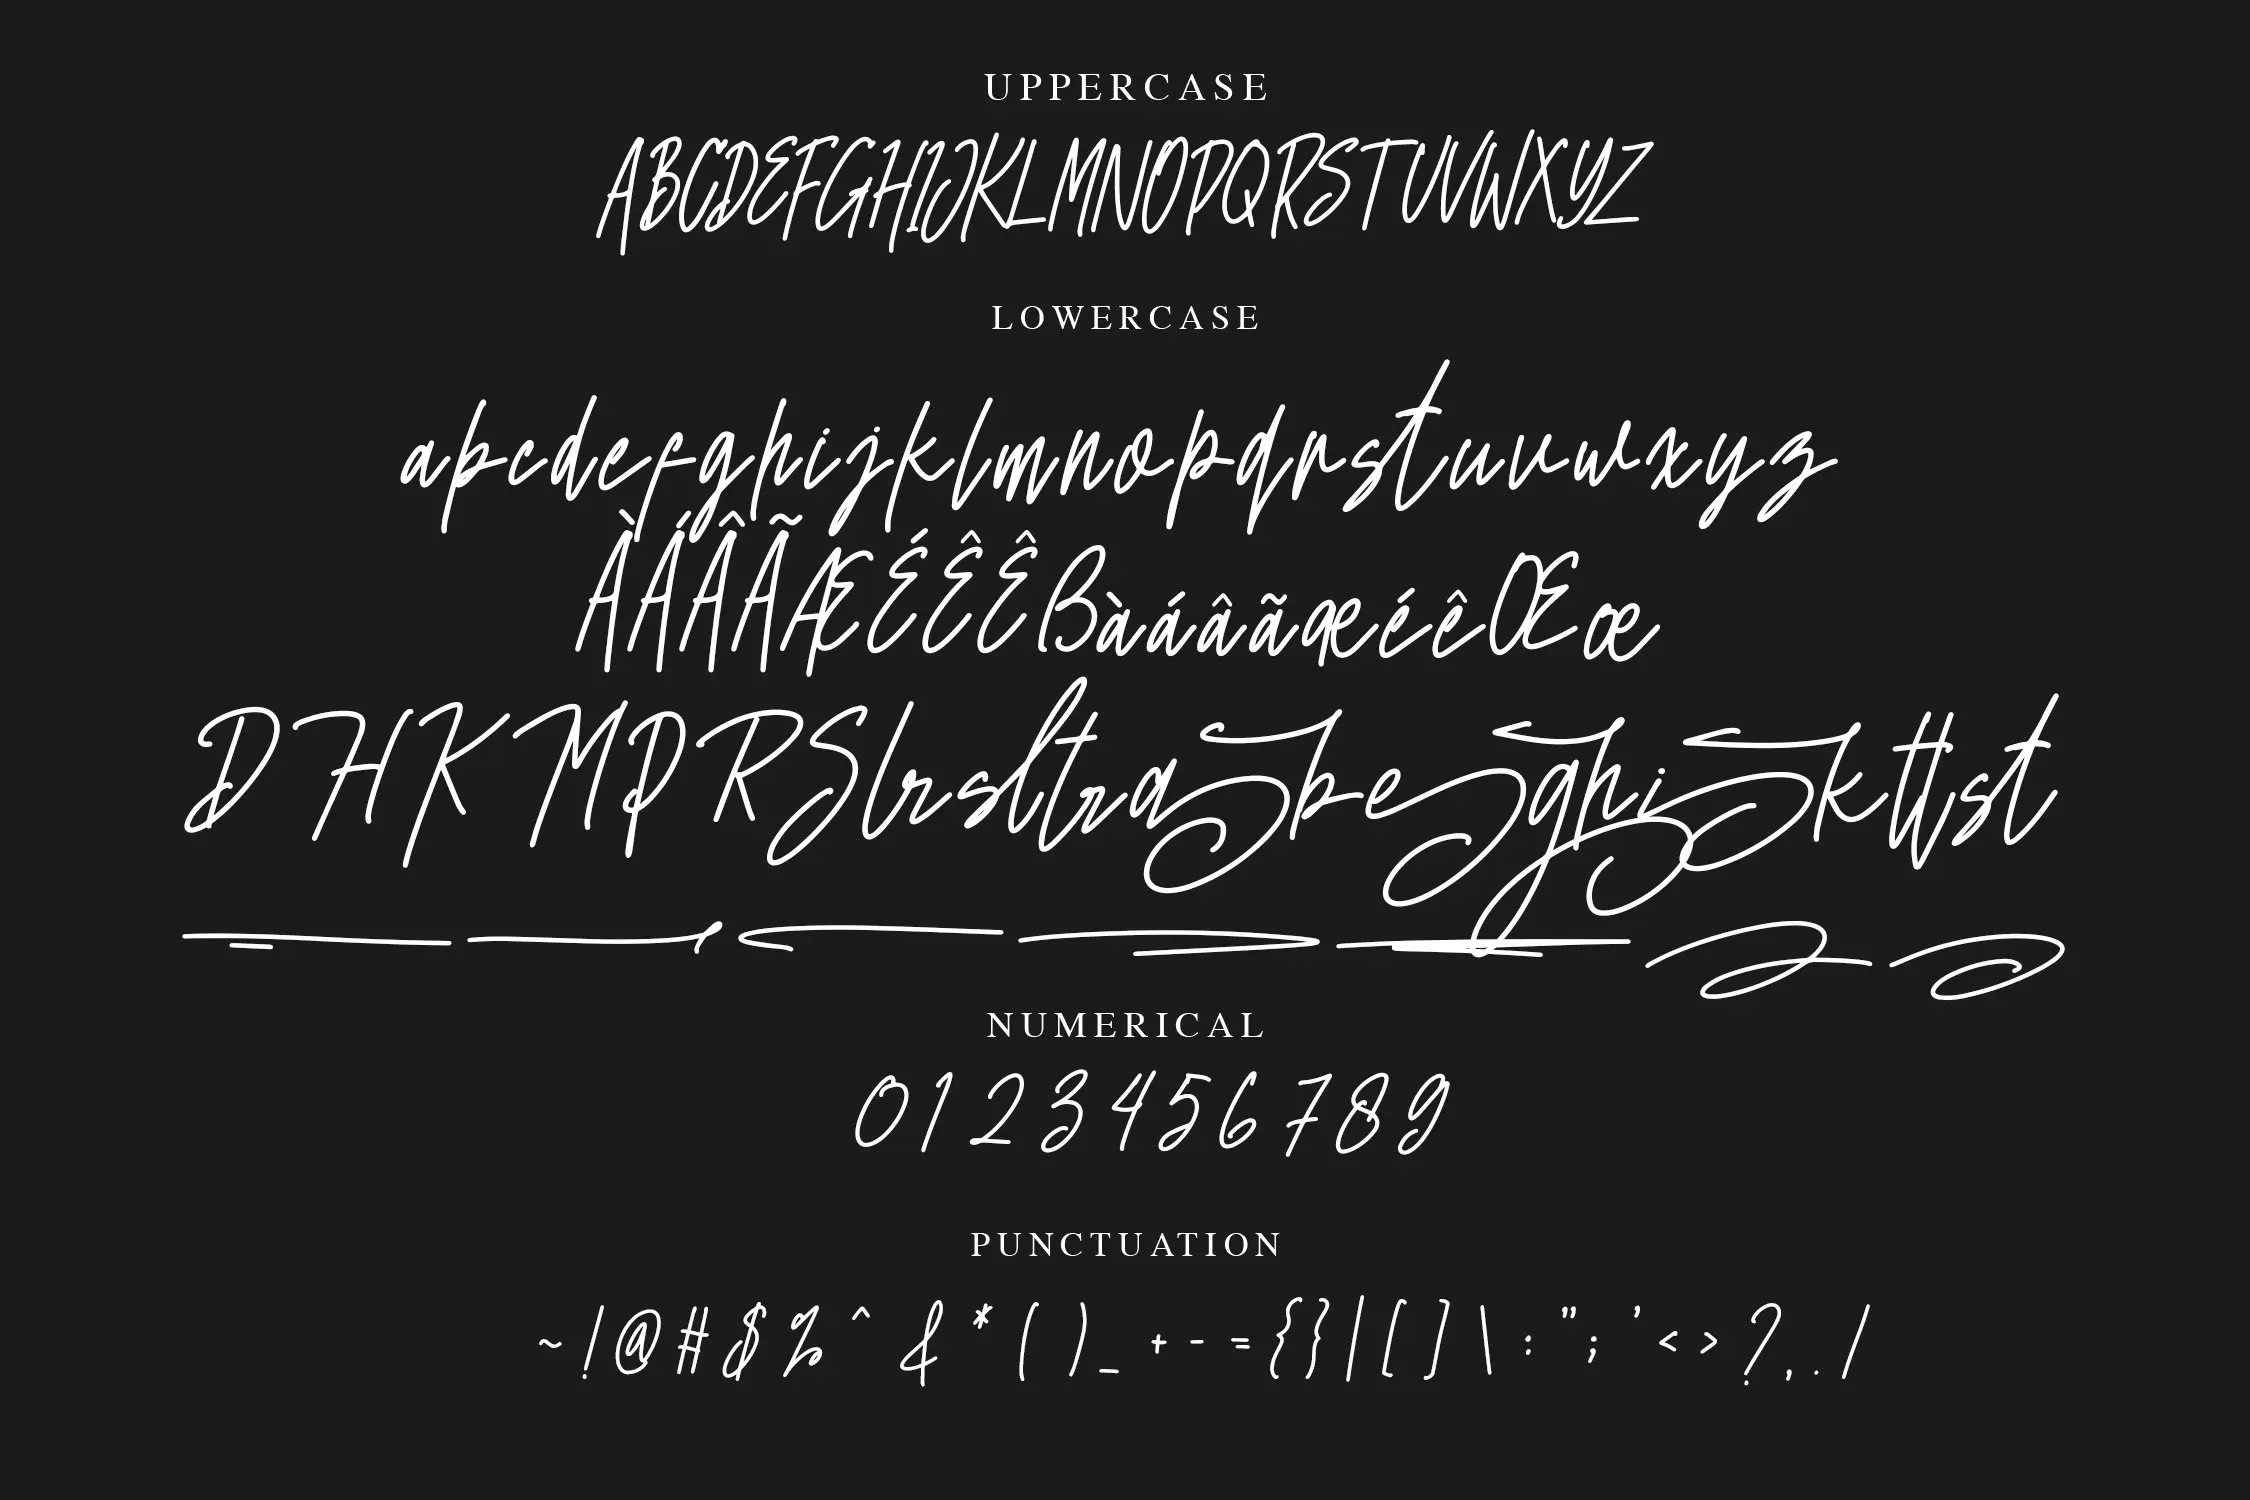 UPPERCASE
ABCDEFGHIJKLMNOPQRSTUVWXYZ
LOWERCASE
abcdefghijklmnopqrstuvwxyz
ÀÁÂÃÆÉÊÊßàáâãæéêŒœ
DHKMPRSlrsltrabeghikttst
NUMERICAL
0123456789
PUNCTUATION
~!@#$%^&*()_+-={}|[]\:";'<>?,./